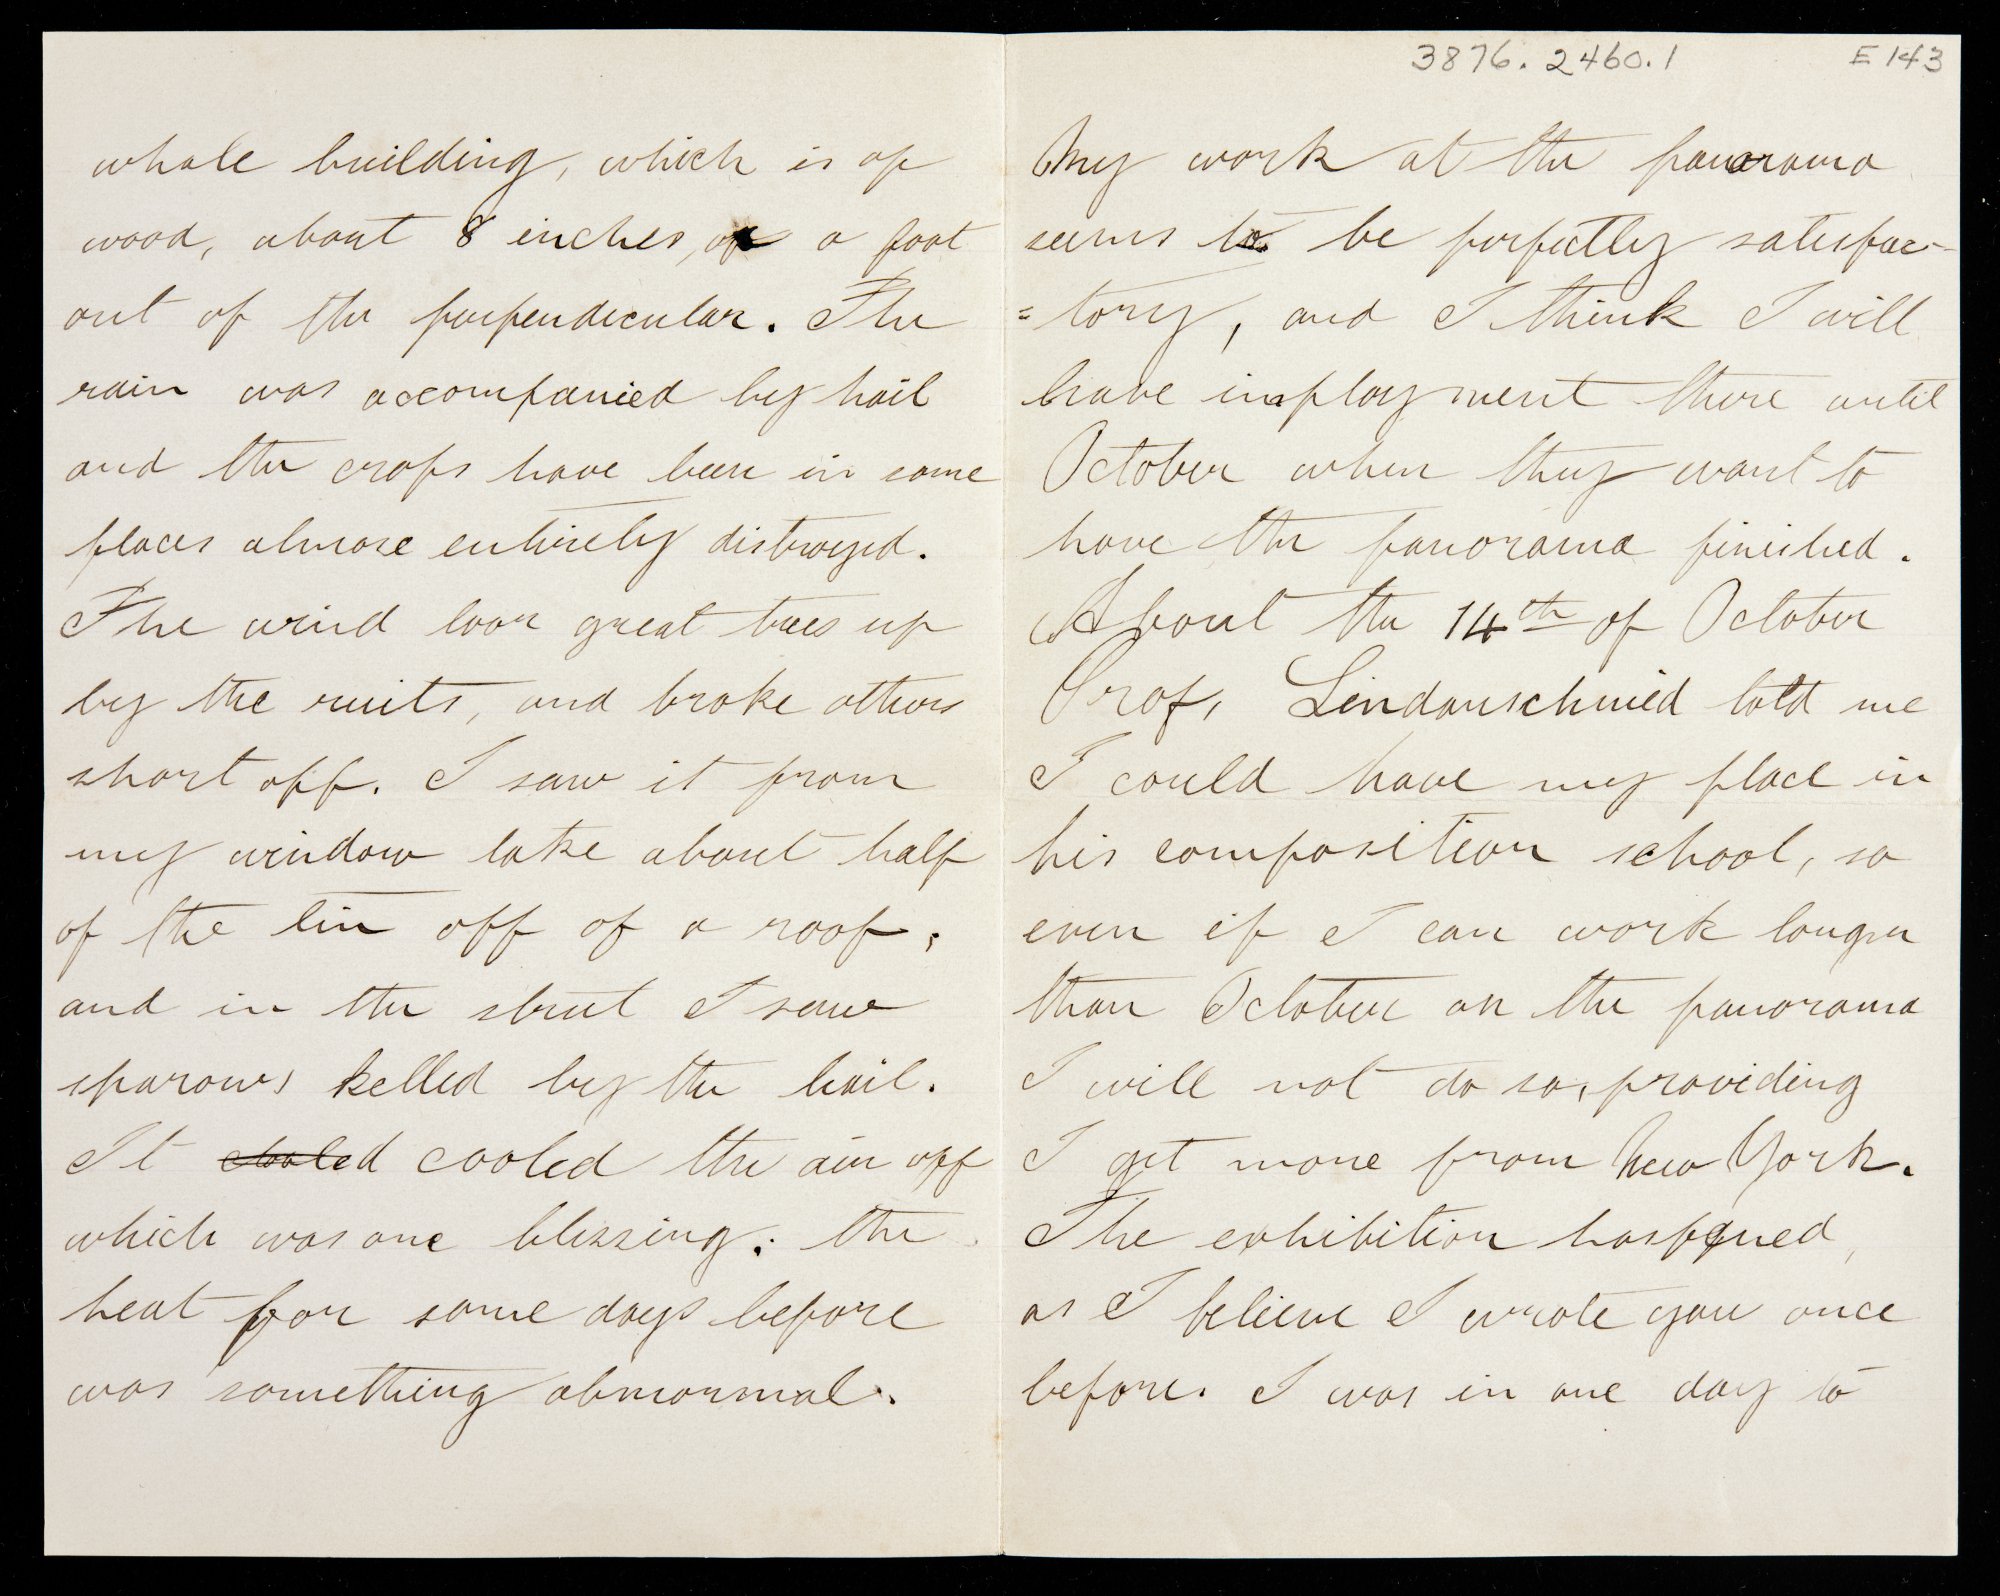 whole building, which is of
wood, about 8 inches, or a foot
out of the perpendicular. The
rain was accompanied by hail
and the crops have been in some
places almose entirely distroyed.
The wind toar great trees up
by the ruits, and broke others
short off. I saw it from
my window take about half
of the tin off of a roof,
and in the street I saw
sparows kelled by the hail.
It cooled the air off
which was one blessing; the
heat for some days before
was something abnormal.
3876.2460.1 E143
My work at the panorama
seems to be perfectly satisfac-
=tory, and I think I will
have imployment there until
October when they want to
have the panorama finished.
About the 14th of October
Prof, Lindanschmied told me
I could have my place in
his composition school, so
even if I can work longer
than October on the panorama
I will not do so, providing
I get mone from New York.
The exhibition has opened,
as I believe I wrote you once
before. I was in one day to